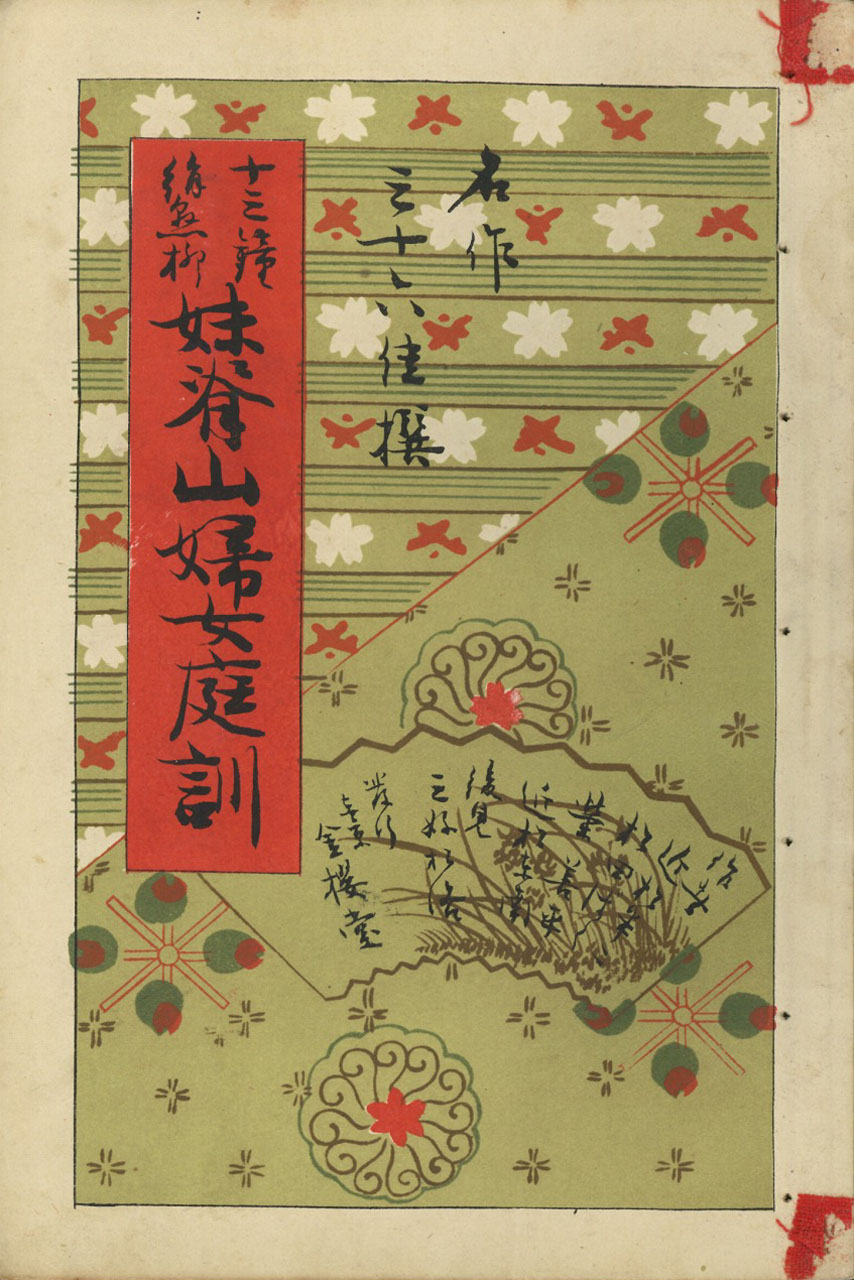 名作
三十六佳撰
十三鐘
絹懸柳
妹脊山婦女庭訓
作者
近松
松田
善平
近松東南
後見
三好松洛
発行
東京
金櫻堂